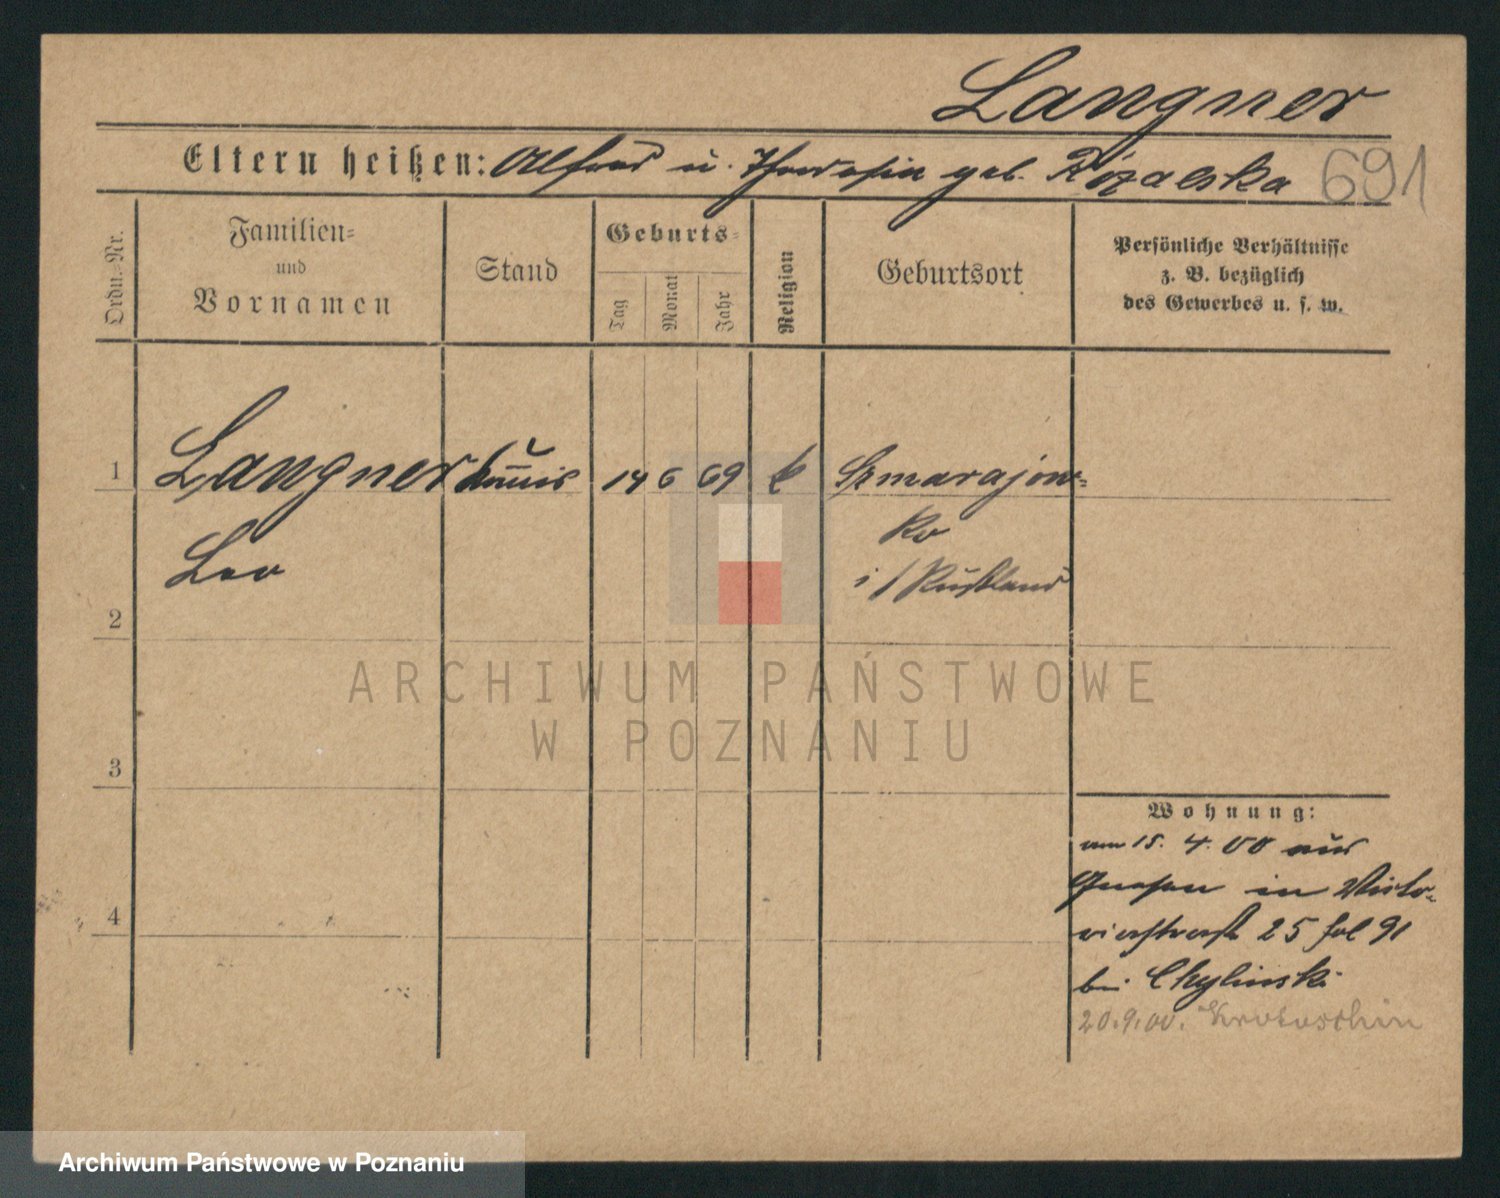 Langner
Eltern heißen: Alfred u. Theodosia geb. Rózalska 691
Ordn.-Nr.
Familien-
und
Vornamen
Stand
Geburts-
Tag
Monat
Jahr
Religion
Geburtsort
Persönliche Verhältnisse
z. B. bezüglich
des Gewerbes u. s. w.
1 Langner 14 6 69 k
ko
Leo
i/Rußland
2
ARCHIWUM PAŃSTWOWE
W POZNANIU
3
Wohnung:
am 15. 4. 00 aus
Gnesen in Victo-
riastraße 25 fol 91
4
bei Chylinski
20.9.00. Krotoschin
Archiwum Państwowe w Poznaniu